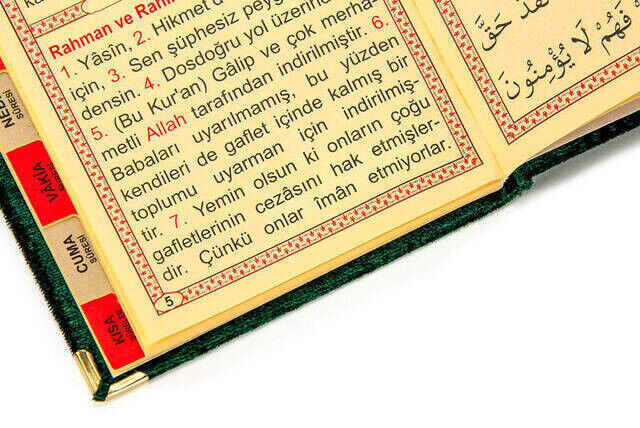 Rahman ve
1. Yâsîn, 2. Hikmet
için, 3. Sen şüphesiz
densin. 4. Dosdoğru yol
5. (Bu Kur'an) Gâlip ve çok merha-
metli Allah tarafından indirilmiştir. 6.
Babaları uyarılmamış, bu yüzden
kendileri de gaflet içinde kalmış bir
toplumu uyarman için indirilmiş-
tir. 7. Yemin olsun ki onların çoğu
gafletlerinin cezâsını hak etmişler-
dir. Çünkü onlar îmân etmiyorlar.
5
حَقَّ
فَهُمْ لَا يُؤْمِنُونَ
SURESİ
VÂKIA
SURESİ
CUMA
SURESİ
KISA
SURELER